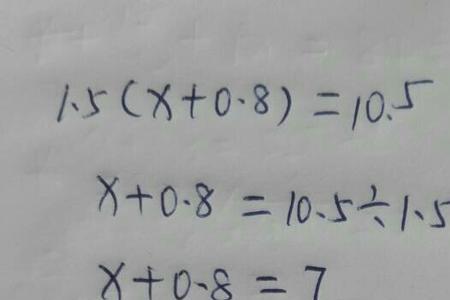 1.5(x+0.8)=10.5
x+0.8=10.5÷1.5
x+0.8=7